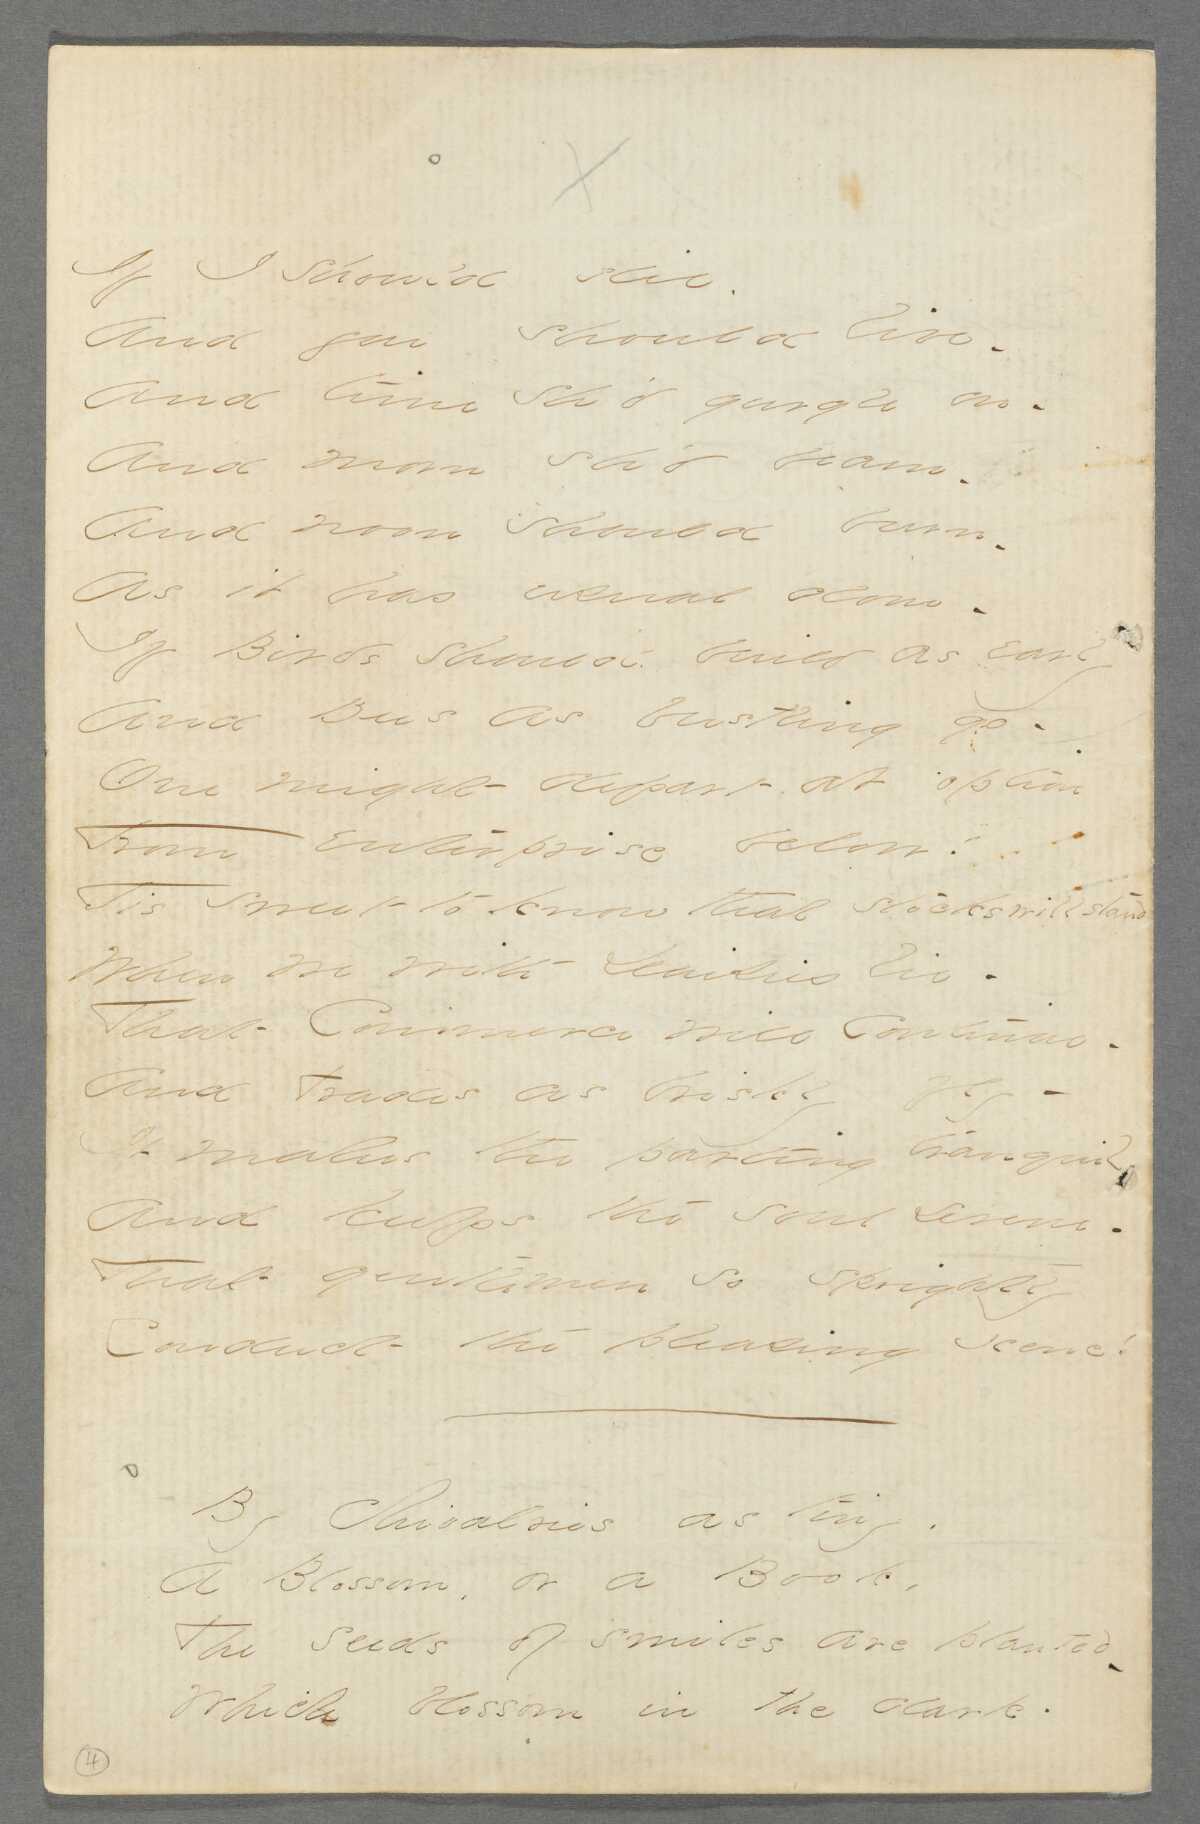 If I should die.
And you should live -
And time sh'd gurgle on -
And morn sh'd beam -
And noon should burn -
As it has usual done -
If Birds should build as early
And Bees as bustling go -
One might depart at option
From enterprise below!
Tis sweet to know that stocks will stand
When we with Daisies lie -
That Commerce will continue -
And Trades as briskly fly -
It makes the parting tranquil
And keeps the soul serene -
That gentlemen so sprightly
Conduct the pleasing scene!
By Chivalries as tiny,
A Blossom, or a Book,
The seeds of smiles are planted -
Which blossom in the dark.
4